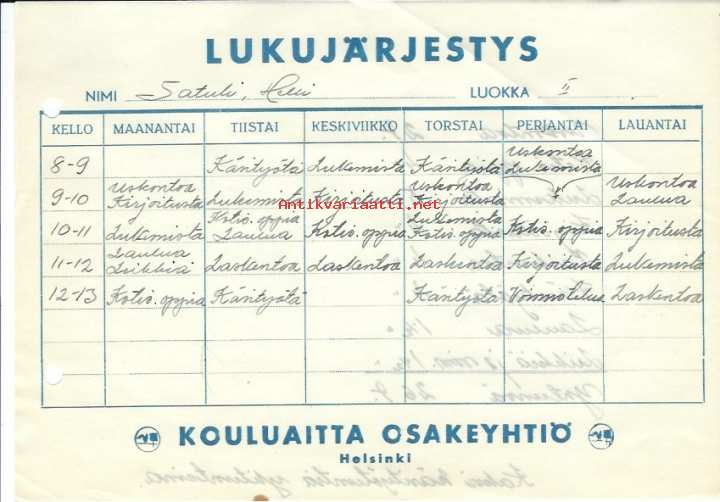 LUKUJÄRJESTYS
NIMI Satuli, Heli LUOKKA II
KELLO MAANANTAI TIISTAI KESKIVIIKKO TORSTAI PERJANTAI LAUANTAI
8-9 Käsityötä Lukemista Käsityötä Uskontoa
Lukemista
9-10 Uskontoa Lukemista Kirjoitust Uskontoa Uskontoa
Kirjoitusta Kirjoitusta Laulua
Antikvariaatti.net
10-11 Lukemista Kotis. oppia Kotis. oppia Lukemista Kotis. oppia Kirjoitusta
Laulua Kotis. oppia
11-12 Laulua Laskentoa Laskentoa Laskentoa Kirjoitusta Lukemista
Leikkiä
12-13 Kotis. oppia Käsityötä Käsityötä Voimistelua Laskentoa
KOULUAITTA OSAKEYHTIÖ
Helsinki